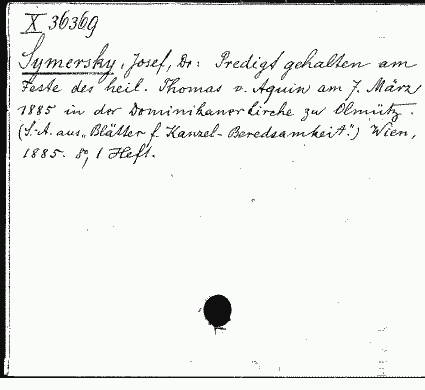 X 36369
Symersky, Josef, Dr: Predigt gehalten am
Feste des heil. Thomas v. Aquin am 7. März
1885 in der Dominikanerkirche zu Olmütz.
(S.-A. aus „Blätter f. Kanzel-Beredsamkeit.") Wien,
1885. 8°, 1 Heft.